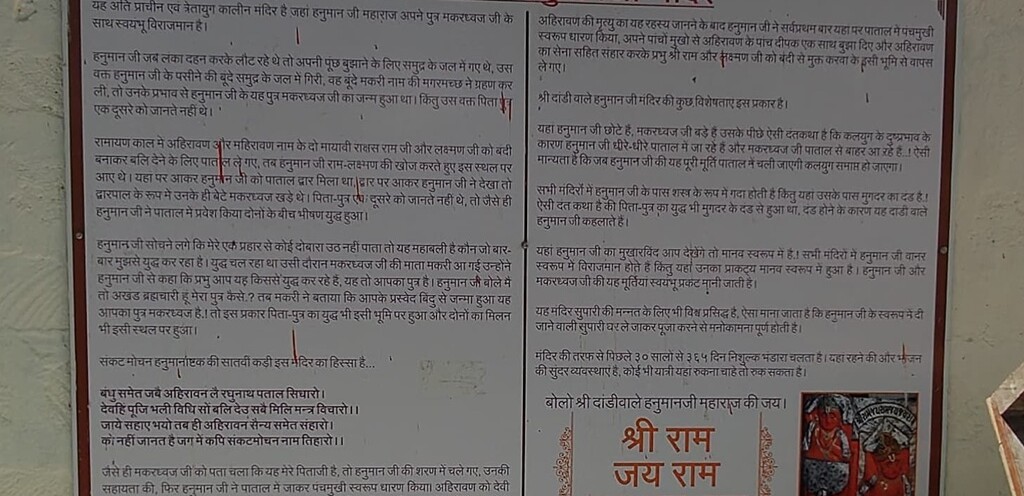 यह अति प्राचीन एवं त्रेतायुग कालीन मंदिर है जहां हनुमान जी महाराज अपने पुत्र मकरध्वज जी के
साथ स्वयंभू विराजमान है।
हनुमान जी जब लंका दहन करके लौट रहे थे तो अपनी पूंछ बुझाने के लिए समुद्र के जल में गए थे, उस
वक्त हनुमान जी के पसीने की बूंदे समुद्र के जल में गिरी, वह बूंदे मकरी नाम की मगरमच्छ ने ग्रहण कर
ली, तो उनके प्रभाव से हनुमान जी के यह पुत्र मकरध्वज जी का जन्म हुआ था। किंतु उस वक्त पिता पुत्र
एक दूसरे को जानते नहीं थे।
रामायण काल मे अहिरावण और महिरावण नाम के दो मायावी राक्षस राम जी और लक्ष्मण जी को बंदी
बनाकर बलि देने के लिए पाताल ले गए, तब हनुमान जी राम-लक्ष्मण की खोज करते हुए इस स्थल पर
आए थे। यहां पर आकर हनुमान जी को पाताल द्वार मिला था, द्वार पर आकर हनुमान जी ने देखा तो
द्वारपाल के रूप में उनके ही बेटे मकरध्वज खड़े थे। पिता-पुत्र एक दूसरे को जानते नही थे, तो जैसे ही
हनुमान जी ने पाताल मे प्रवेश किया दोनों के बीच भीषण युद्ध हुआ।
हनुमान जी सोचने लगे कि मेरे एक प्रहार से कोई दोबारा उठ नहीं पाता तो यह महाबली है कौन जो बार-
बार मुझसे युद्ध कर रहा है। युद्ध चल रहा था उसी दौरान मकरध्वज जी की माता मकरी आ गई उन्होंने
हनुमान जी से कहा कि प्रभु आप यह किससे युद्ध कर रहे हैं, यह तो आपका पुत्र है। हनुमान जी बोले मै
तो अखंड ब्रह्मचारी हूं मेरा पुत्र कैसे.? तब मकरी ने बताया कि आपके प्रस्वेद बिंदु से जन्मा हुआ यह
आपका पुत्र मकरध्वज है.! तो इस प्रकार पिता-पुत्र का युद्ध भी इसी भूमि पर हुआ और दोनों का मिलन
भी इसी स्थल पर हुआ।
संकट मोचन हनुमानाष्टक की सातवीं कडी इस मंदिर का हिस्सा है...
बंधु समेत जबै अहिरावन लै रघुनाथ पताल सिधारो।
देवहिं पूजि भली विधि सों बलि देउ सबै मिलि मन्त्र विचारो।।
जाये सहाए भयो तब ही अहिरावन सैन्य समेत संहारो।
को नहीं जानत है जग में कपि संकटमोचन नाम तिहारो।।
जैसे ही मकरध्वज जी को पता चला कि यह मेरे पिताजी है, तो हनुमान जी की शरण में चले गए, उनकी
सहायता की, फिर हनुमान जी ने पाताल मे जाकर पंचमुखी स्वरूप धारण किया। अहिरावण को देवी
अहिरावण की मृत्यु का यह रहस्य जानने के बाद हनुमान जी ने सर्वप्रथम बार यहां पर पाताल में पंचमुखी
स्वरूप धारण किया, अपने पांचों मुखो से अहिरावण के पांच दीपक एक साथ बुझा दिए और अहिरावण
का सेना सहित संहार करके प्रभु श्री राम और लक्ष्मण जी को बंदी से मुक्त करवा के इसी भूमि से वापस
ले गए।
श्री दांडी वाले हनुमान जी मंदिर की कुछ विशेषताए इस प्रकार है।
यहां हनुमान जी छोटे हैं, मकरध्वज जी बड़े हैं उसके पीछे ऐसी दंतकथा है कि कलयुग के दुष्प्रभाव के
कारण हनुमान जी धीरे-धीरे पाताल में जा रहे हैं और मकरध्वज जी पाताल से बाहर आ रहे हैं..! ऐसी
मान्यता है कि जब हनुमान जी की यह पूरी मूर्ति पाताल में चली जाएगी कलयुग समाप्त हो जाएगा।
सभी मंदिरों में हनुमान जी के पास शस्त्र के रूप में गदा होती है किंतु यहा उसके पास मुगदर का दंड है.!
ऐसी दंत कथा है की पिता-पुत्र का युद्ध भी मुगदर के दंड से हुआ था, दंड होने के कारण यह दांडी वाले
हनुमान जी कहलाते हैं।
यहां हनुमान जी का मुखारविंद आप देखेंगे तो मानव स्वरूप में है.! सभी मंदिरों में हनुमान जी वानर
स्वरूप में विराजमान होते हैं किंतु यहां उनका प्राकट्य मानव स्वरूप में हुआ है। हनुमान जी और
मकरध्वज जी की यह मूर्तियां स्वयंभू प्रकट मानी जाती है।
यह मंदिर सुपारी की मन्नत के लिए भी विश्व प्रसिद्ध है, ऐसा माना जाता है कि हनुमान जी के स्वरूप में दी
जाने वाली सुपारी घर ले जाकर पूजा करने से मनोकामना पूर्ण होती है।
मंदिर की तरफ से पिछले ३० सालों से ३६५ दिन निशुल्क भंडारा चलता है। यहां रहने की और भोजन
की सुंदर व्यवस्थाएं है, कोई भी यात्री यहां रुकना चाहे तो रुक सकता है।
बोलो श्री दांडीवाले हनुमानजी महाराज की जय।
श्री राम
जय राम